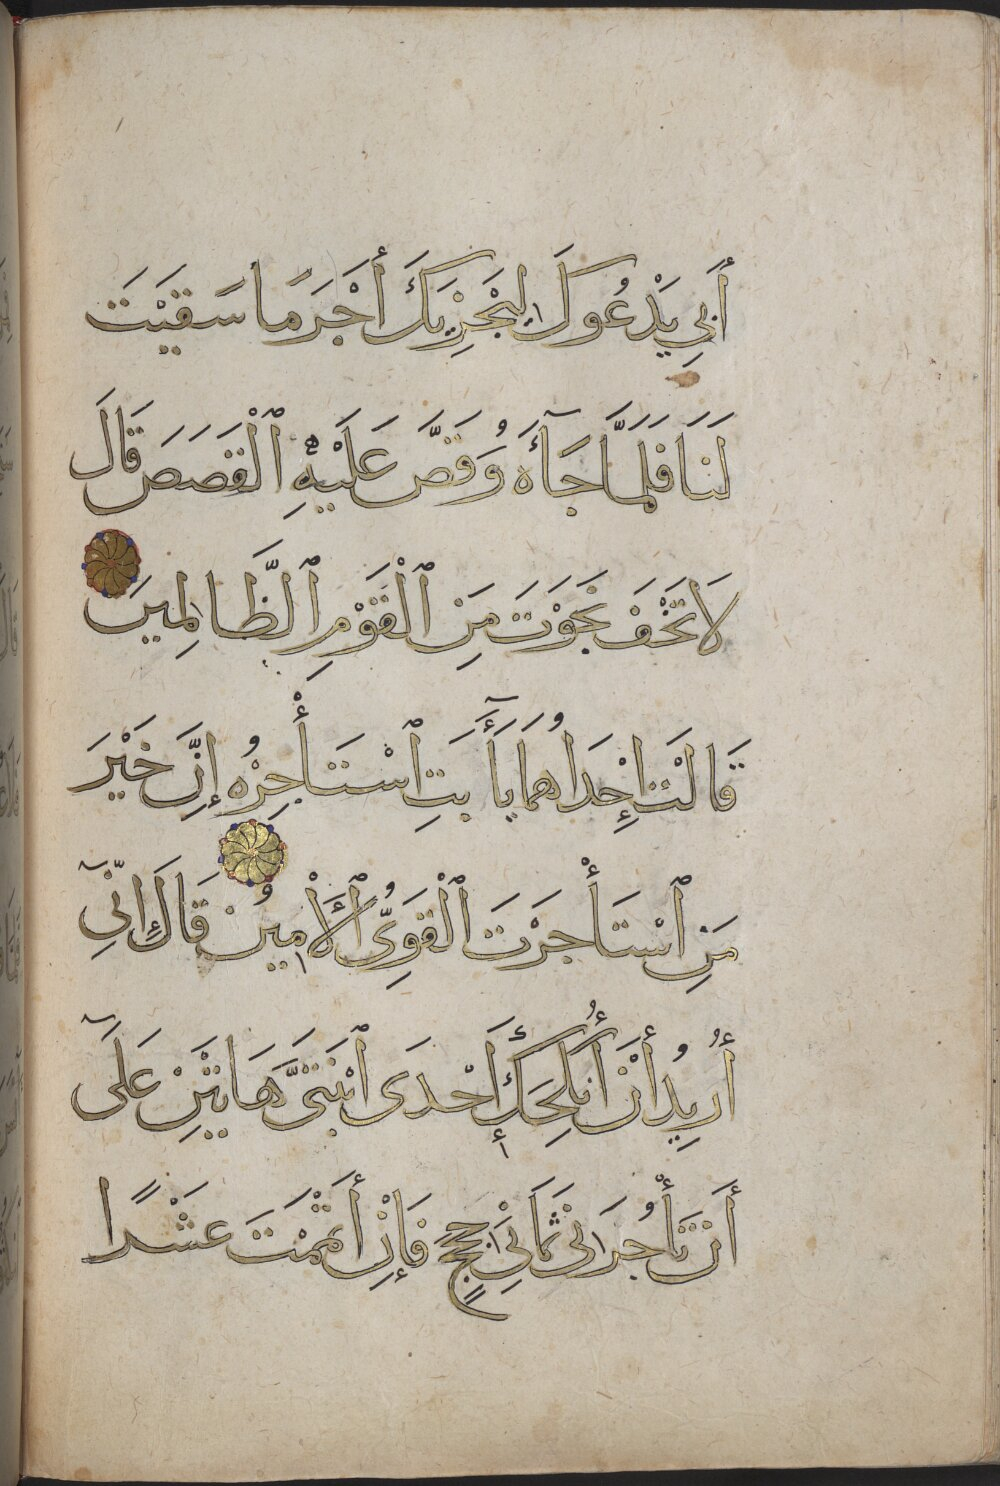 أَبِي يَدْعُوكَ لِيَجْزِيَكَ أَجْرَ مَا سَقَيْتَ
لَنَا فَلَمَّا جَآءَهُ وَقَصَّ عَلَيْهِ ٱلْقَصَصَ قَالَ
لَا تَخَفْ نَجَوْتَ مِنَ ٱلْقَوْمِ ٱلظَّالِمِينَ
قَالَتْ إِحْدَاهُمَا يَآأَبَتِ ٱسْتَأْجِرْهُ إِنَّ خَيْرَ
مَنِ ٱسْتَأْجَرْتَ ٱلْقَوِيُّ ٱلْأَمِينُ قَالَ إِنِّيٓ
أُرِيدُ أَنْ أُنكِحَكَ إِحْدَى ٱبْنَتَيَّ هَاتَيْنِ عَلَىٓ
أَن تَأْجُرَنِي ثَمَانِيَ حِجَجٍ فَإِنْ أَتْمَمْتَ عَشْرًا